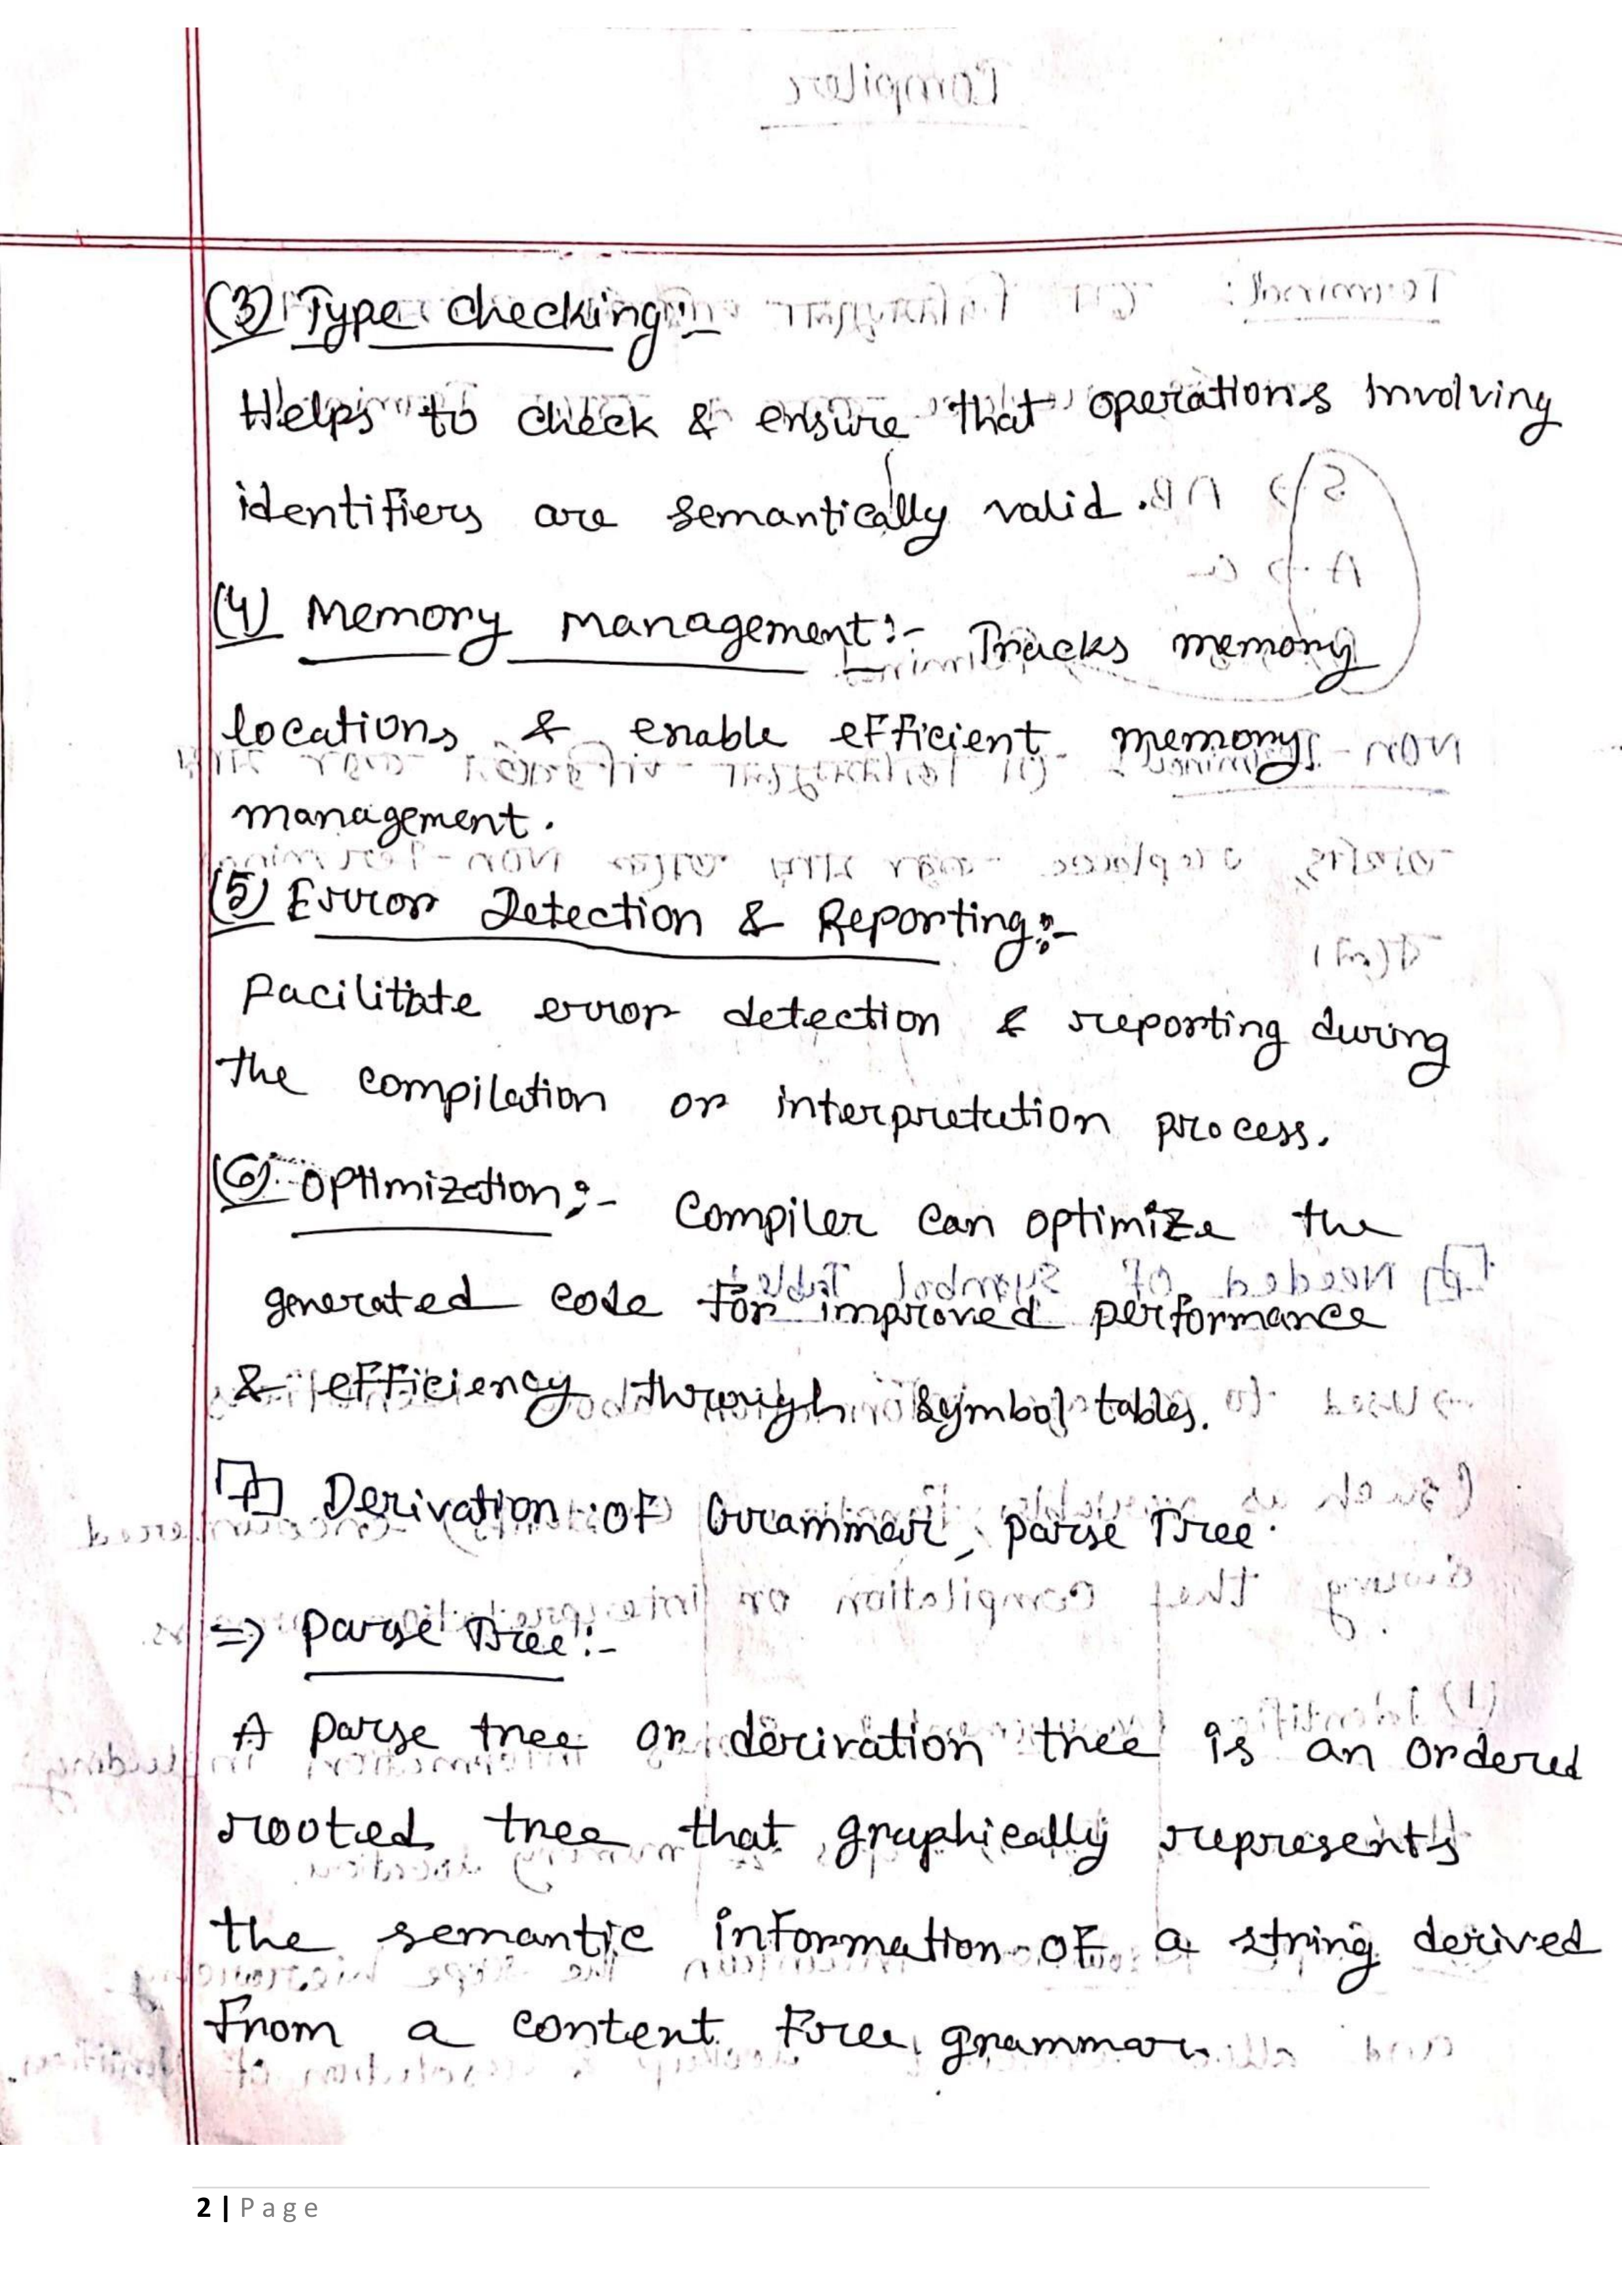 (3) Type checking:-
Helps to check & ensure that operations involving
identifiers are semantically valid.
(4) Memory management:- Tracks memory
locations & enable efficient memory
management.
(5) Error Detection & Reporting:-
Facilitate error detection & reporting during
the compilation or interpretation process.
(6) Optimization:- Compiler can optimize the
generated code for improved performance
& efficiency through symbol tables.
Derivation of Grammar, parse Tree.
=> Parse Tree:-
A parse tree or derivation tree is an ordered
rooted tree that graphically represents
the semantic information of a string derived
from a content free grammar.
2 | Page